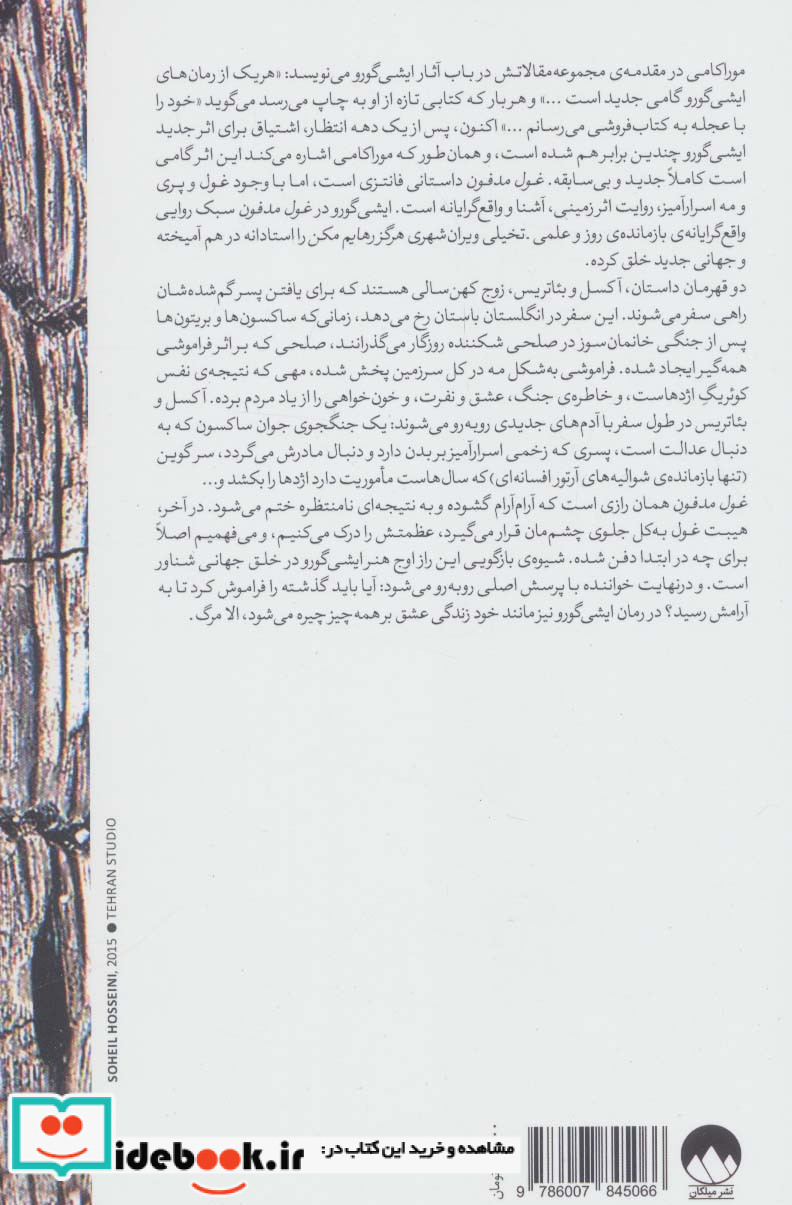 موراکامی در مقدمه‌ی مجموعه‌مقالاتش در باب آثار ایشی‌گورو می‌نویسد: «هریک از رمان‌های
ایشی‌گورو گامی جدید است ...» و هربار که کتابی تازه از او به چاپ می‌رسد می‌گوید «خود را
با عجله به کتاب‌فروشی می‌رسانم ...» اکنون، پس از یک دهه انتظار، اشتیاق برای اثر جدید
ایشی‌گورو چندین برابر هم شده است، و همان‌طور که موراکامی اشاره می‌کند این اثر گامی
است کاملاً جدید و بی‌سابقه. غول مدفون داستانی فانتزی است، اما با وجود غول و پری
و مه اسرارآمیز، روایت اثر زمینی، آشنا و واقع‌گرایانه است. ایشی‌گورو در غول مدفون سبک روایی
واقع‌گرایانه‌ی بازمانده‌ی روز و علمی ـ تخیلی ویران‌شهری هرگز رهایم مکن را استادانه در هم آمیخته
و جهانی جدید خلق کرده.
دو قهرمان داستان، آکسل و بئاتریس، زوج کهن‌سالی هستند که برای یافتن پسر گم‌شده‌شان
راهی سفر می‌شوند. این سفر در انگلستان باستان رخ می‌دهد، زمانی‌که ساکسون‌ها و بریتون‌ها
پس از جنگی خانمان‌سوز در صلحی شکننده روزگار می‌گذرانند، صلحی که بر اثر فراموشی
همه‌گیر ایجاد شده. فراموشی به‌شکل مه در کل سرزمین پخش شده، مهی که نتیجه‌ی نفس
کوئریگِ اژدهاست، و خاطره‌ی جنگ، عشق و نفرت، و خون‌خواهی را از یاد مردم برده. آکسل و
بئاتریس در طول سفر با آدم‌های جدیدی روبه‌رو می‌شوند: یک جنگجوی جوان ساکسون که به
دنبال عدالت است، پسری که زخمی اسرارآمیز بر بدن دارد و دنبال مادرش می‌گردد، سر گوین
(تنها بازمانده‌ی شوالیه‌های آرتور افسانه‌ای) که سال‌هاست مأموریت دارد اژدها را بکشد و...
غول مدفون همان رازی است که آرام‌آرام گشوده و به نتیجه‌ای نامنتظره ختم می‌شود. در آخر،
هیبت غول به‌کل جلوی چشم‌مان قرار می‌گیرد، عظمتش را درک می‌کنیم، و می‌فهمیم اصلاً
برای چه در ابتدا دفن شده. شیوه‌ی بازگویی این راز اوج هنر ایشی‌گورو در خلق جهانی شناور
است. و درنهایت خواننده با پرسش اصلی روبه‌رو می‌شود: آیا باید گذشته را فراموش کرد تا به
آرامش رسید؟ در رمان ایشی‌گورو نیز مانند خود زندگی عشق بر همه چیز چیره می‌شود، الا مرگ.
SOHEIL HOSSEINI, 2015 ● TEHRAN STUDIO
idebook.ir
مشاهده و خرید این کتاب در:
تومان
9 786007 845066
نشر میلکان